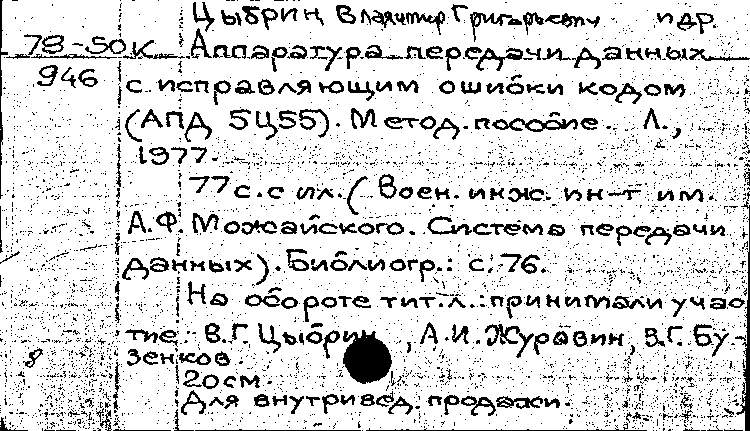 Цыбрин Владимир Григорьевич и др.
78-50к Аппаратура передачи данных
946 с исправляющим ошибки кодом
(АПД 5Ц55). Метод. пособие. Л.,
1977.
77 с. с ил. (Воен. инж. ин-т им.
А.Ф. Можайского. Система передачи
данных). Библиогр.: с. 76.
На обороте тит.л.: принимали учас
тие: В.Г. Цыбрин, А.И. Журавин, В.Г. Бу-
8 зенков.
20 см.
Для внутривед. продажи.